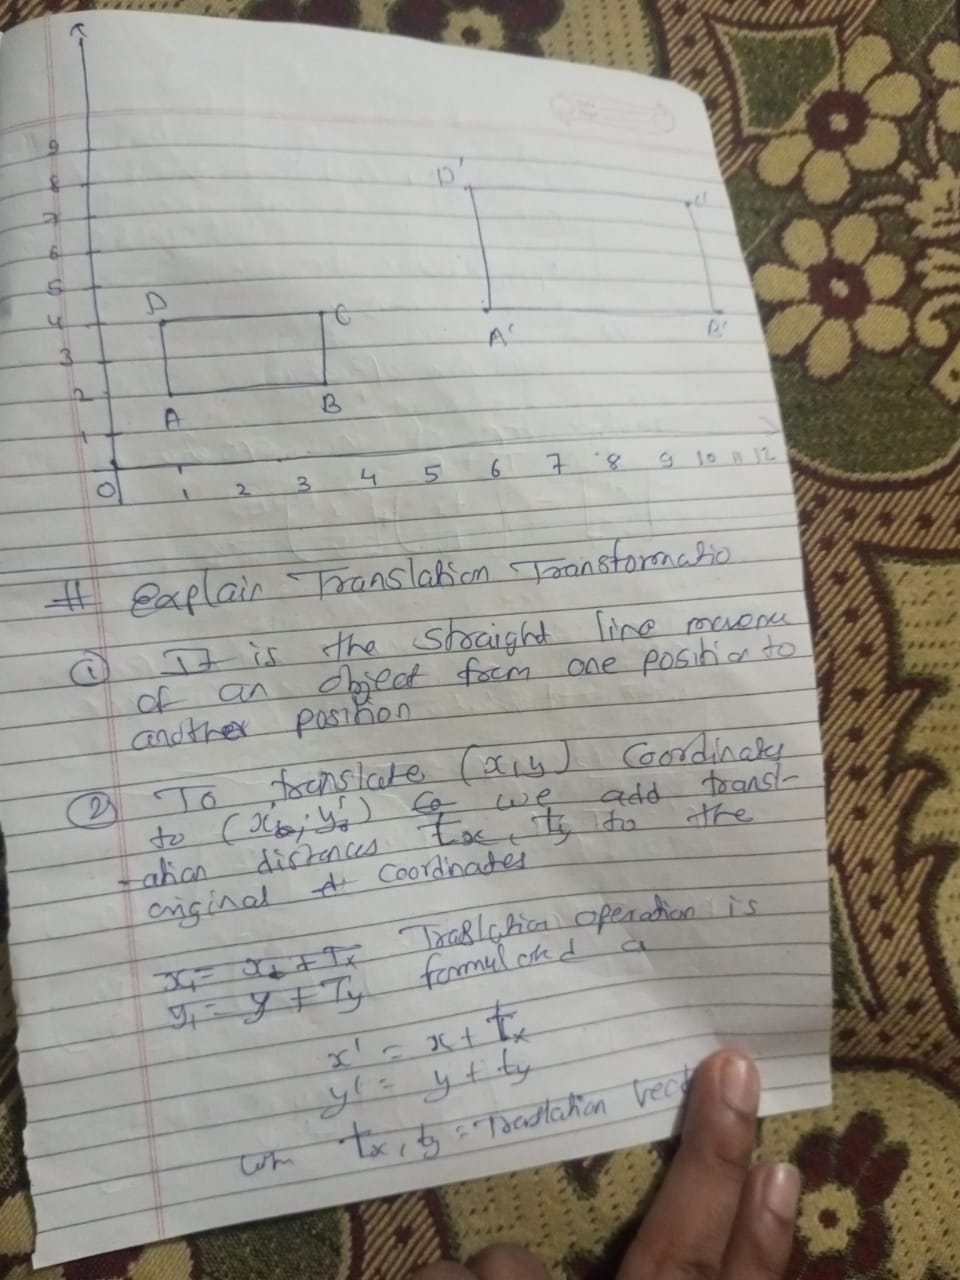 9
D'
8
C'
7
6
5
D
C
4
A'
B'
3
2
A
B
1
0 1 2 3 4 5 6 7 8 9 10 11 12
# Explain Translation Transformatio
① It is the straight line
of an object form one position to
another position
② To translate (x,y) Coordinate
to (x, y) we add transl-
-ation distances tx, ty to the
original coordinates
x₁ = x + Tx Translation operation is
y₁ = y + Ty formulated a
x' = x + tx
y' = y + ty
tx, ty = Translation Vect